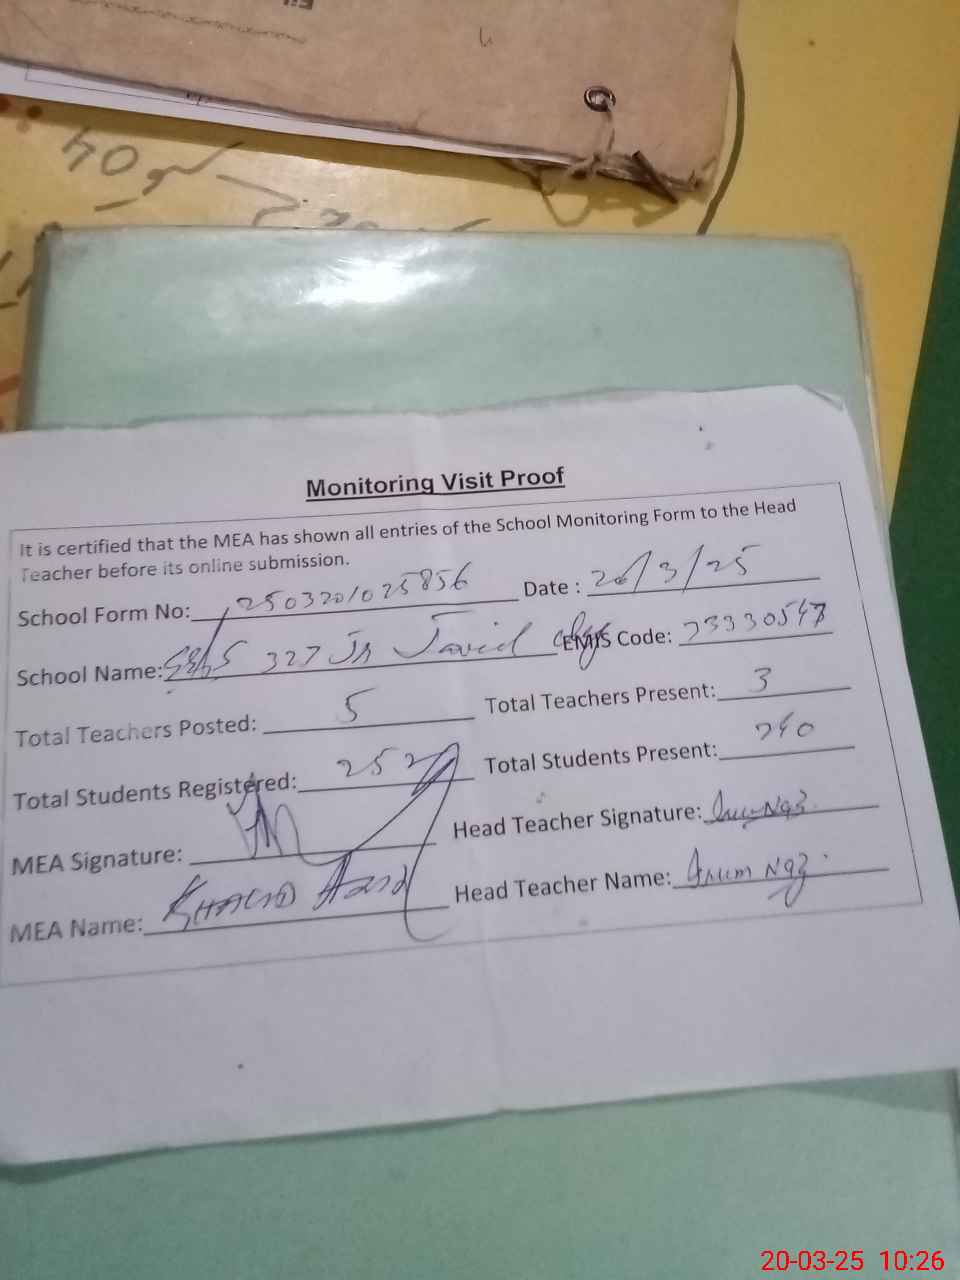 40
Monitoring Visit Proof
It is certified that the MEA has shown all entries of the School Monitoring Form to the Head
Teacher before its online submission.
School Form No: 2503201025856 Date : 20/3/25
School Name: 327 JB Javid EMIS Code: 33330547
Total Teachers Posted: 5 Total Teachers Present: 3
Total Students Registered: 252 Total Students Present: 240
MEA Signature: Head Teacher Signature:
MEA Name: Head Teacher Name: Irum Naz
20-03-25 10:26